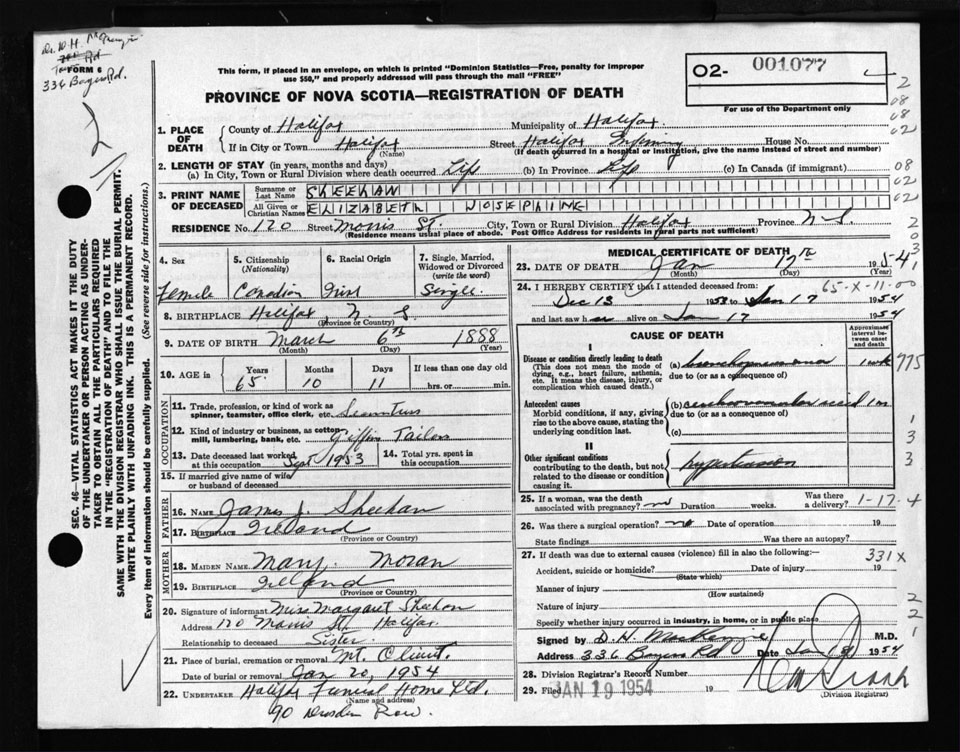 Dr. D. H. McKenzie
FORM 6
336 Bayers Rd.
This form, if placed in an envelope, on which is printed "Dominion Statistics—Free, penalty for improper
use $50," and properly addressed will pass through the mail "FREE"
PROVINCE OF NOVA SCOTIA—REGISTRATION OF DEATH
02- 001077
For use of the Department only
1. PLACE OF DEATH
County of Halifax Municipality of Halifax
If in City or Town Halifax Street Halifax Infirmary House No.
(Name) (If death occurred in a hospital or institution, give the name instead of street and number)
2. LENGTH OF STAY (in years, months and days)
(a) In City, Town or Rural Division where death occurred Life (b) In Province Life (c) In Canada (if immigrant)
3. PRINT NAME OF DECEASED
Surname or Last Name SHEEHAN
All Given or Christian Names ELIZABETH JOSEPHINE
RESIDENCE No. 120 Street Morris St. City, Town or Rural Division Halifax Province N.S.
(Residence means usual place of abode. Post Office Address for residents in rural parts not sufficient)
4. Sex Female
5. Citizenship (Nationality) Canadian
6. Racial Origin Irish
7. Single, Married, Widowed or Divorced (write the word) Single
8. BIRTHPLACE Halifax, N.S.
(Province or Country)
9. DATE OF BIRTH March 6th 1888
(Month) (Day) (Year)
10. AGE in Years 65 Months 10 Days 11 If less than one day old hrs. or min.
OCCUPATION
11. Trade, profession or kind of work as spinner, teamster, office clerk, etc. Seamstress
12. Kind of industry or business, as cotton mill, lumbering, bank, etc. Tailors
13. Date deceased last worked at this occupation Sept 1953
14. Total yrs. spent in this occupation
15. If married give name of wife or husband of deceased
FATHER
16. NAME James J. Sheehan
17. BIRTHPLACE Ireland
(Province or Country)
MOTHER
18. MAIDEN NAME Mary Moran
19. BIRTHPLACE Ireland
(Province or Country)
20. Signature of informant Miss Margaret Sheehan
Address 120 Morris St. Halifax
Relationship to deceased Sister
21. Place of burial, cremation or removal Mt. Olivet.
Date of burial or removal Jan 20, 1954
22. UNDERTAKER Halifax Funeral Home Ltd.
(Name and address)
90 Dresden Row.
MEDICAL CERTIFICATE OF DEATH
23. DATE OF DEATH Jan 17th 1954
(Month) (Day) (Year)
65-X-11-00
24. I HEREBY CERTIFY that I attended deceased from:
Dec 13 1953 to Jan 17 1954
and last saw her alive on Jan 17 1954
CAUSE OF DEATH
Approximate interval between onset and death
I
Disease or condition directly leading to death
(This does not mean the mode of dying, e.g., heart failure, asthenia, etc. It means the disease, injury, or complication which caused death.)
(a) bronchopneumonia 1 wk
due to (or as a consequence of)
Antecedent causes
Morbid conditions, if any, giving rise to the above cause, stating the underlying condition last.
(b) cerebrovascular accident 1 m
due to (or as a consequence of)
(c)
II
Other significant conditions
contributing to the death, but not related to the disease or condition causing it.
hypertension
25. If a woman, was the death associated with pregnancy? no Duration weeks. Was there a delivery?
1-17-4
26. Was there a surgical operation? no Date of operation 19
State findings Was there an autopsy?
27. If death was due to external causes (violence) fill in also the following:—
331X
Accident, suicide or homicide? Date of injury 19
(State which)
Manner of injury
(How sustained)
Nature of injury
Specify whether injury occurred in industry, in home, or in public place
Signed by D. H. MacKenzie M.D.
Address 336 Bayers Rd Date Jan 1954
28. Division Registrar's Record Number
29. Filed JAN 19 1954 19
(Division Registrar)
775
SEC. 46—VITAL STATISTICS ACT MAKES IT THE DUTY
OF THE UNDERTAKER OR PERSON ACTING AS UNDER-
TAKER TO OBTAIN ALL THE PARTICULARS REQUIRED
IN THE "REGISTRATION OF DEATH" AND TO FILE THE
SAME WITH THE DIVISION REGISTRAR WHO SHALL ISSUE THE BURIAL PERMIT.
WRITE PLAINLY WITH UNFADING INK. THIS IS A PERMANENT RECORD.
Every item of information should be carefully supplied. (See reverse side for instructions.)